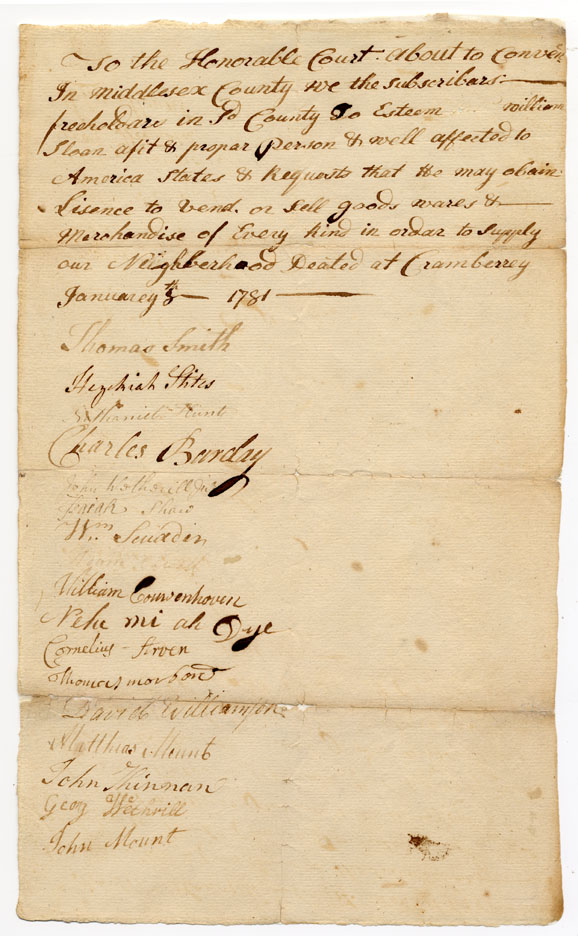 To the Honorable Court about to Conven
In middlesex County we the subscribars
freeholdare in Sd County Do Esteem william
Sloan afit & propar Person & well affected to
America States & Requests that He may obain
Lisence to vend. or Sell goods wares &
Merchandise of Every Kind in ordar to Supply
our Neighberhood Deated at Cramberrey
Januarey 8th 1781
Thomas Smith
Hezekiah Stites
Nathaniel Hunt
Charles Barclay
John Wetherill
Isaiah Shaw
Wm
William Couwenhoven
Nehe mi ah Dye
Cornelius
Thomas
David Williamson
Matthias Mount
John Thinnan
Georg
John Mount